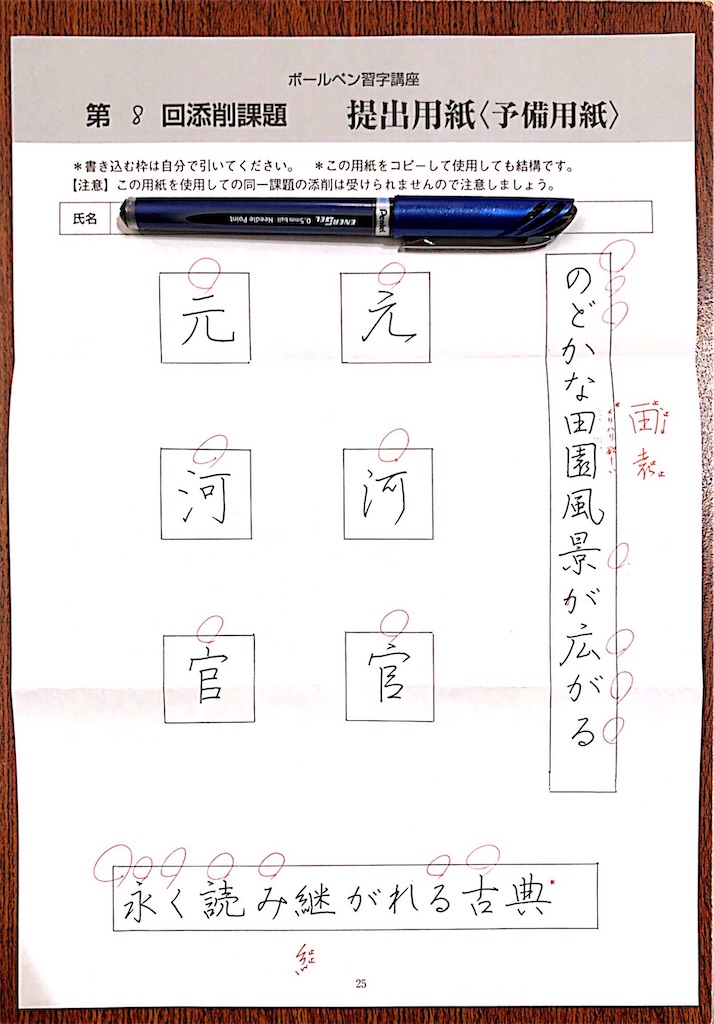 ボールペン習字講座
第 8 回添削課題 提出用紙〈予備用紙〉
*書き込む枠は自分で引いてください。 *この用紙をコピーして使用しても結構です。
【注意】この用紙を使用しての同一課題の添削は受けられませんので注意しましょう。
氏名
Pentel ENERGEL 0.5mm ball Needle Point
のどかな田園風景が広がる
元 元
河 河
官 官
永く読み継がれる古典
25